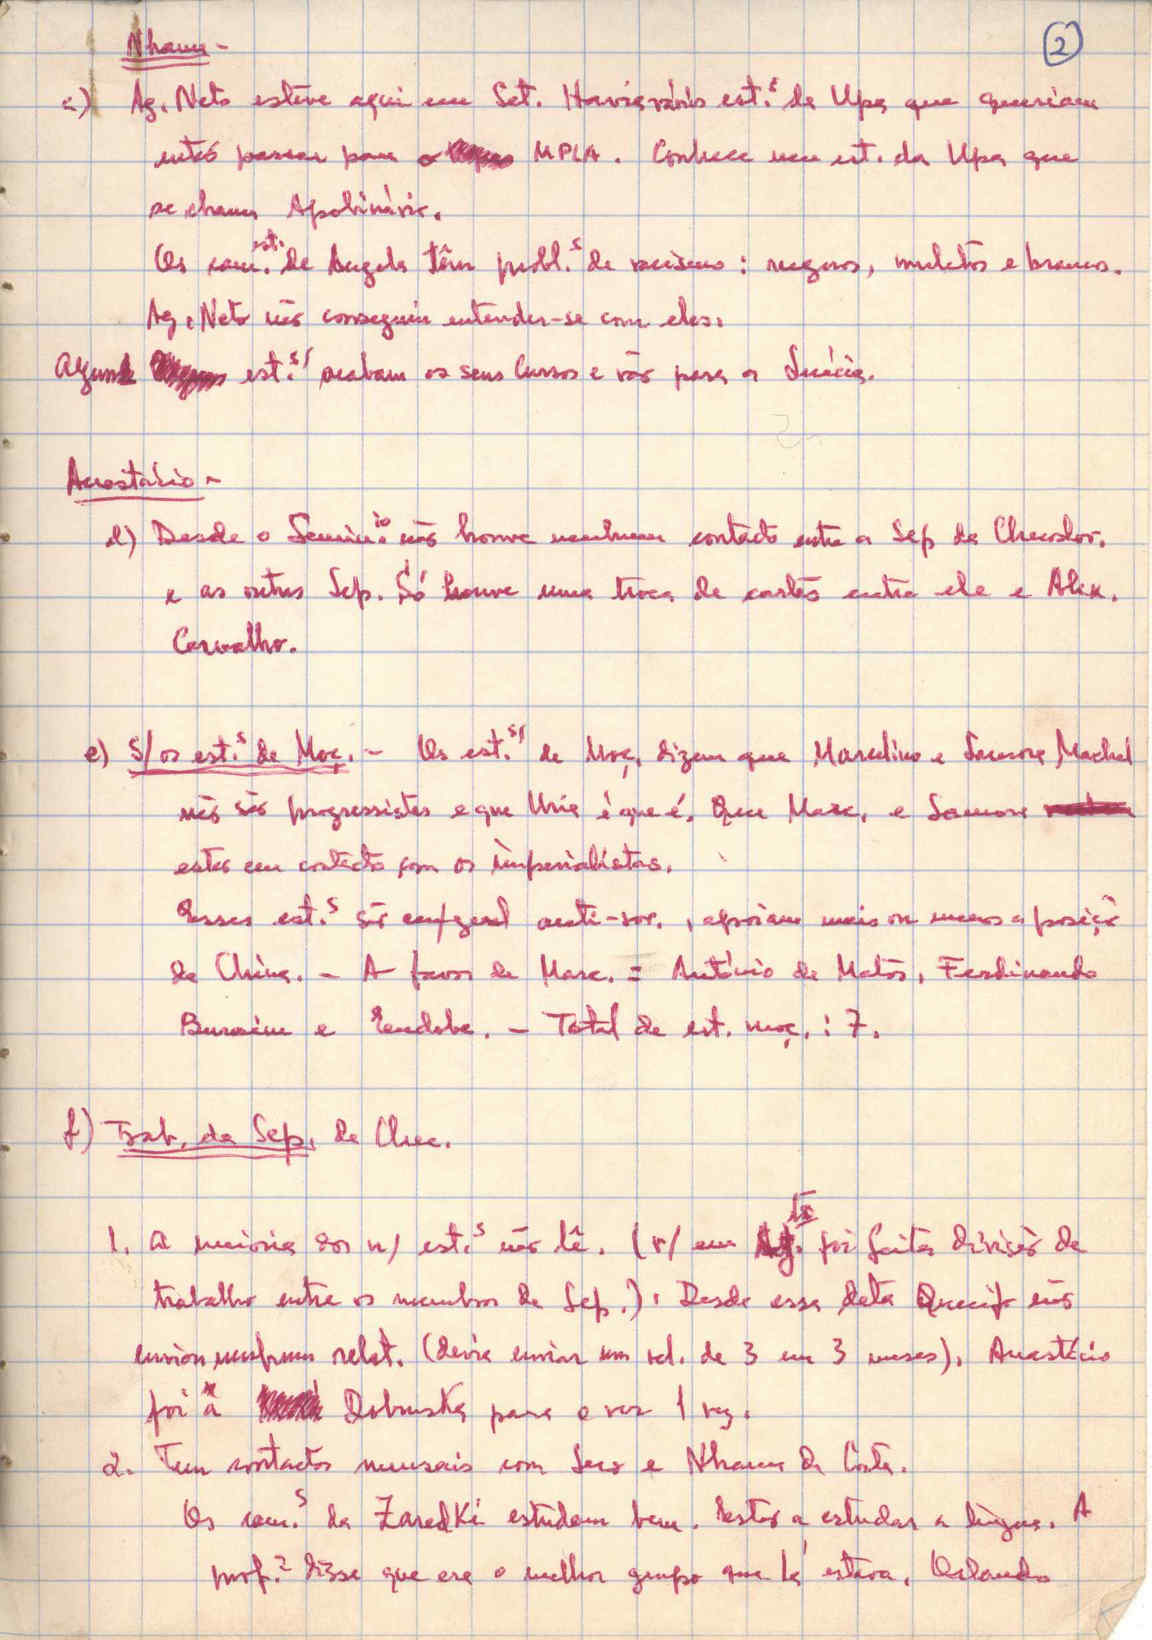 2
Nhama -
c) Ag. Neto esteve aqui em Set. Havia vários est.s da Upa que queriam
então passar para o MPLA. Conhece um est. da Upa que
se chama Apolinário.
Os cam. est. de Angola têm probl.s de racismo: negros, mulatos e brancos.
Ag. Neto não conseguiu entender-se com eles.
Alguns est.s acabam os seus cursos e vão para a Suécia.
Anastácio -
d) Desde o Seminário não houve nenhum contacto entre a Sep da Checoslov.
e as outras Sep. Só houve uma troca de cartas entre ele e Alex.
Carvalho.
e) S/ os est.s de Moç. - Os est.s de Moç. dizem que Marcelino e Samora Machel
não são progressistas e que Uria é que é. Que Marc. e Samora
estão em contacto com os imperialistas.
Esses est.s são em geral anti-sov., apoiam mais ou menos a posição
da China. - A favor de Marc. = António de Matos, Ferdinando
e . - Total de est. moç.: 7.
f) Trab. da Sep. de Chec.
1. A maioria dos n/ est.s não lê. ( em foi feita divisão de
trabalho entre os membros da Sep.). Desde essa data não
enviou nenhum relat. (devia enviar um rel. de 3 em 3 meses). Anastácio
foi à Dobruska para o ver 1 vez.
2. Tem contactos mensais com e Nhama da Costa.
Os cam.s da Zaredki estudam bem. Estão a estudar a língua. A
prof.a disse que era o melhor grupo que lá estava. Orlando